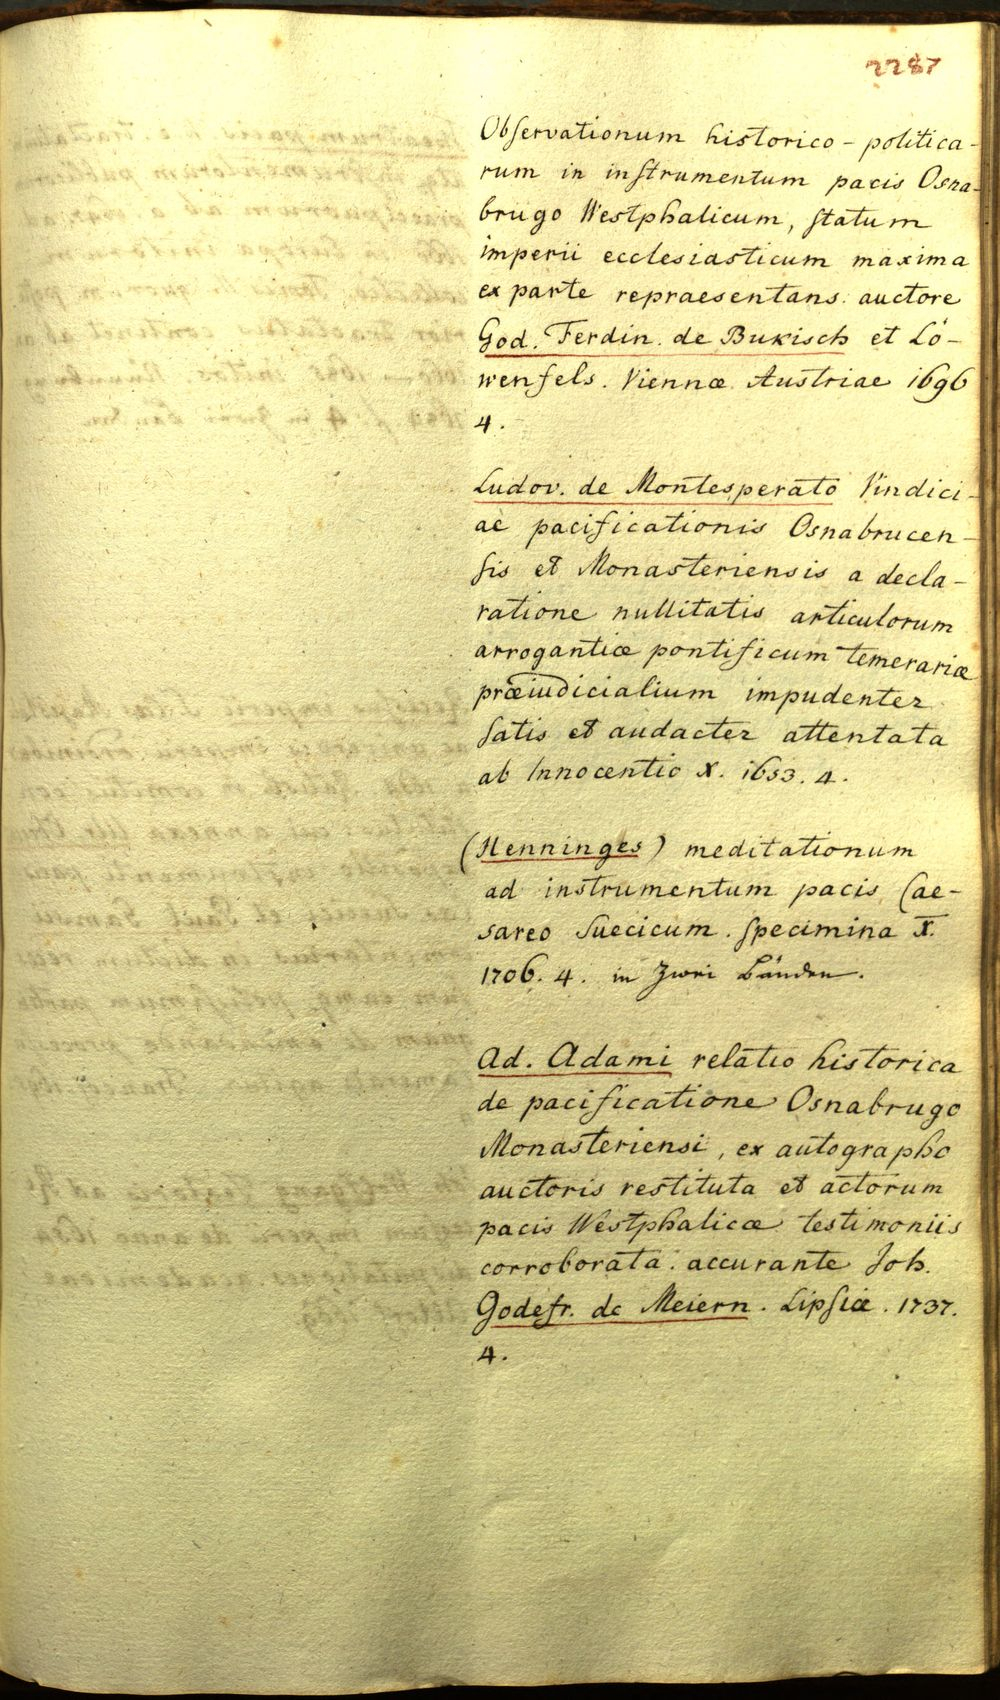 2287
Observationum historico-politica-
rum in instrumentum pacis Osna-
brugo Westphalicum, statum
imperii ecclesiasticum maxima
ex parte repraesentans. auctore
God. Ferdin. de Bukisch et Lö-
wenfels. Viennæ Austriae 1696
4.
Ludov. de Montesperato Vindici-
ae pacificationis Osnabrucen-
sis et Monasteriensis a decla-
ratione nullitatis articulorum
arrogantiæ pontificum temerariæ
præiudicialium impudenter
satis et audacter attentata
ab Innocentio X. 1653. 4.
(Henninges) meditationum
ad instrumentum pacis Cae-
sareo Suecicum. specimina X.
1706. 4. in zwei Bänden.
Ad. Adami relatio historica
de pacificatione Osnabrugo
Monasteriensi, ex autographo
auctoris restituta et actorum
pacis Westphalicæ testimoniis
corroborata. accurante Joh.
Godefr. de Meiern. Lipsiæ. 1737.
4.